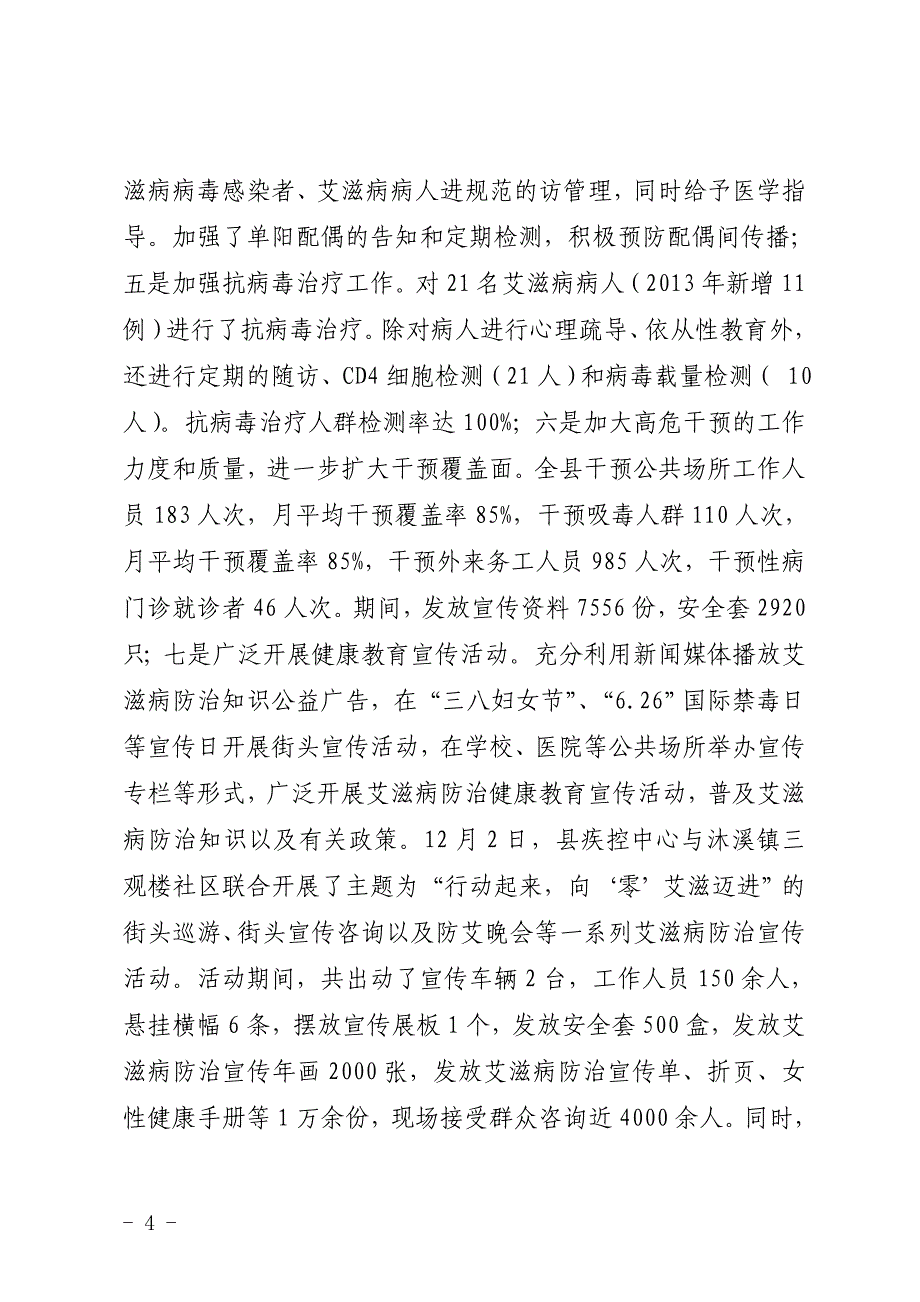 滋病病毒感染者、艾滋病病人进规范的访管理，同时给予医学指
导。加强了单阳配偶的告知和定期检测，积极预防配偶间传播；
五是加强抗病毒治疗工作。对21名艾滋病病人（2013年新增11
例）进行了抗病毒治疗。除对病人进行心理疏导、依从性教育外，
还进行定期的随访、CD4细胞检测（21人）和病毒载量检测（ 10
人）。抗病毒治疗人群检测率达100%；六是加大高危干预的工作
力度和质量，进一步扩大干预覆盖面。全县干预公共场所工作人
员183人次，月平均干预覆盖率85%，干预吸毒人群110人次，
月平均干预覆盖率85%，干预外来务工人员985人次，干预性病
门诊就诊者46人次。期间，发放宣传资料7556份，安全套2920
只；七是广泛开展健康教育宣传活动。充分利用新闻媒体播放艾
滋病防治知识公益广告，在“三八妇女节”、“6.26”国际禁毒日
等宣传日开展街头宣传活动，在学校、医院等公共场所举办宣传
专栏等形式，广泛开展艾滋病防治健康教育宣传活动，普及艾滋
病防治知识以及有关政策。12月2日，县疾控中心与沐溪镇三
观楼社区联合开展了主题为“行动起来，向‘零’艾滋迈进”的
街头巡游、街头宣传咨询以及防艾晚会等一系列艾滋病防治宣传
活动。活动期间，共出动了宣传车辆2台，工作人员150余人，
悬挂横幅6条，摆放宣传展板1个，发放安全套500盒，发放艾
滋病防治宣传年画2000张，发放艾滋病防治宣传单、折页、女
性健康手册等1万余份，现场接受群众咨询近4000余人。同时，
- 4 -